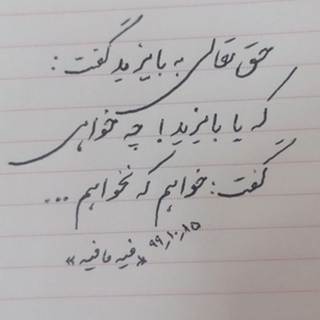 حق تعالی به بایزید گفت:
که یا بایزید! چه خواهی
گفت: خواهم که نخواهم...
۹۹٫۱۰٫۱۵
«فیه ما فیه»